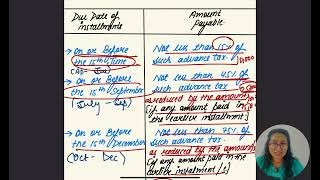 Due Date of
installments
Amount
Payable
→ On or Before
the 15th June
Not less than 15% of
such advance tax.
→ On or Before
the 15th September
(July - Sep)
Not less than 45% of
such advance tax
as reduced by the amount
if any amount paid in
the earlier installment
→ On or before
the 15th December
(Oct - Dec)
Not less than 75% of
such advance tax
as reduced by the amount
if any amount paid in the
earlier installment/s